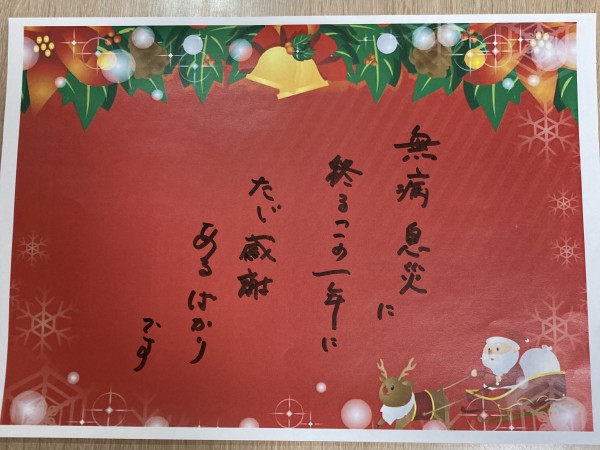 無病息災に
終るこの一年に
ただ感謝
あるばかり
です